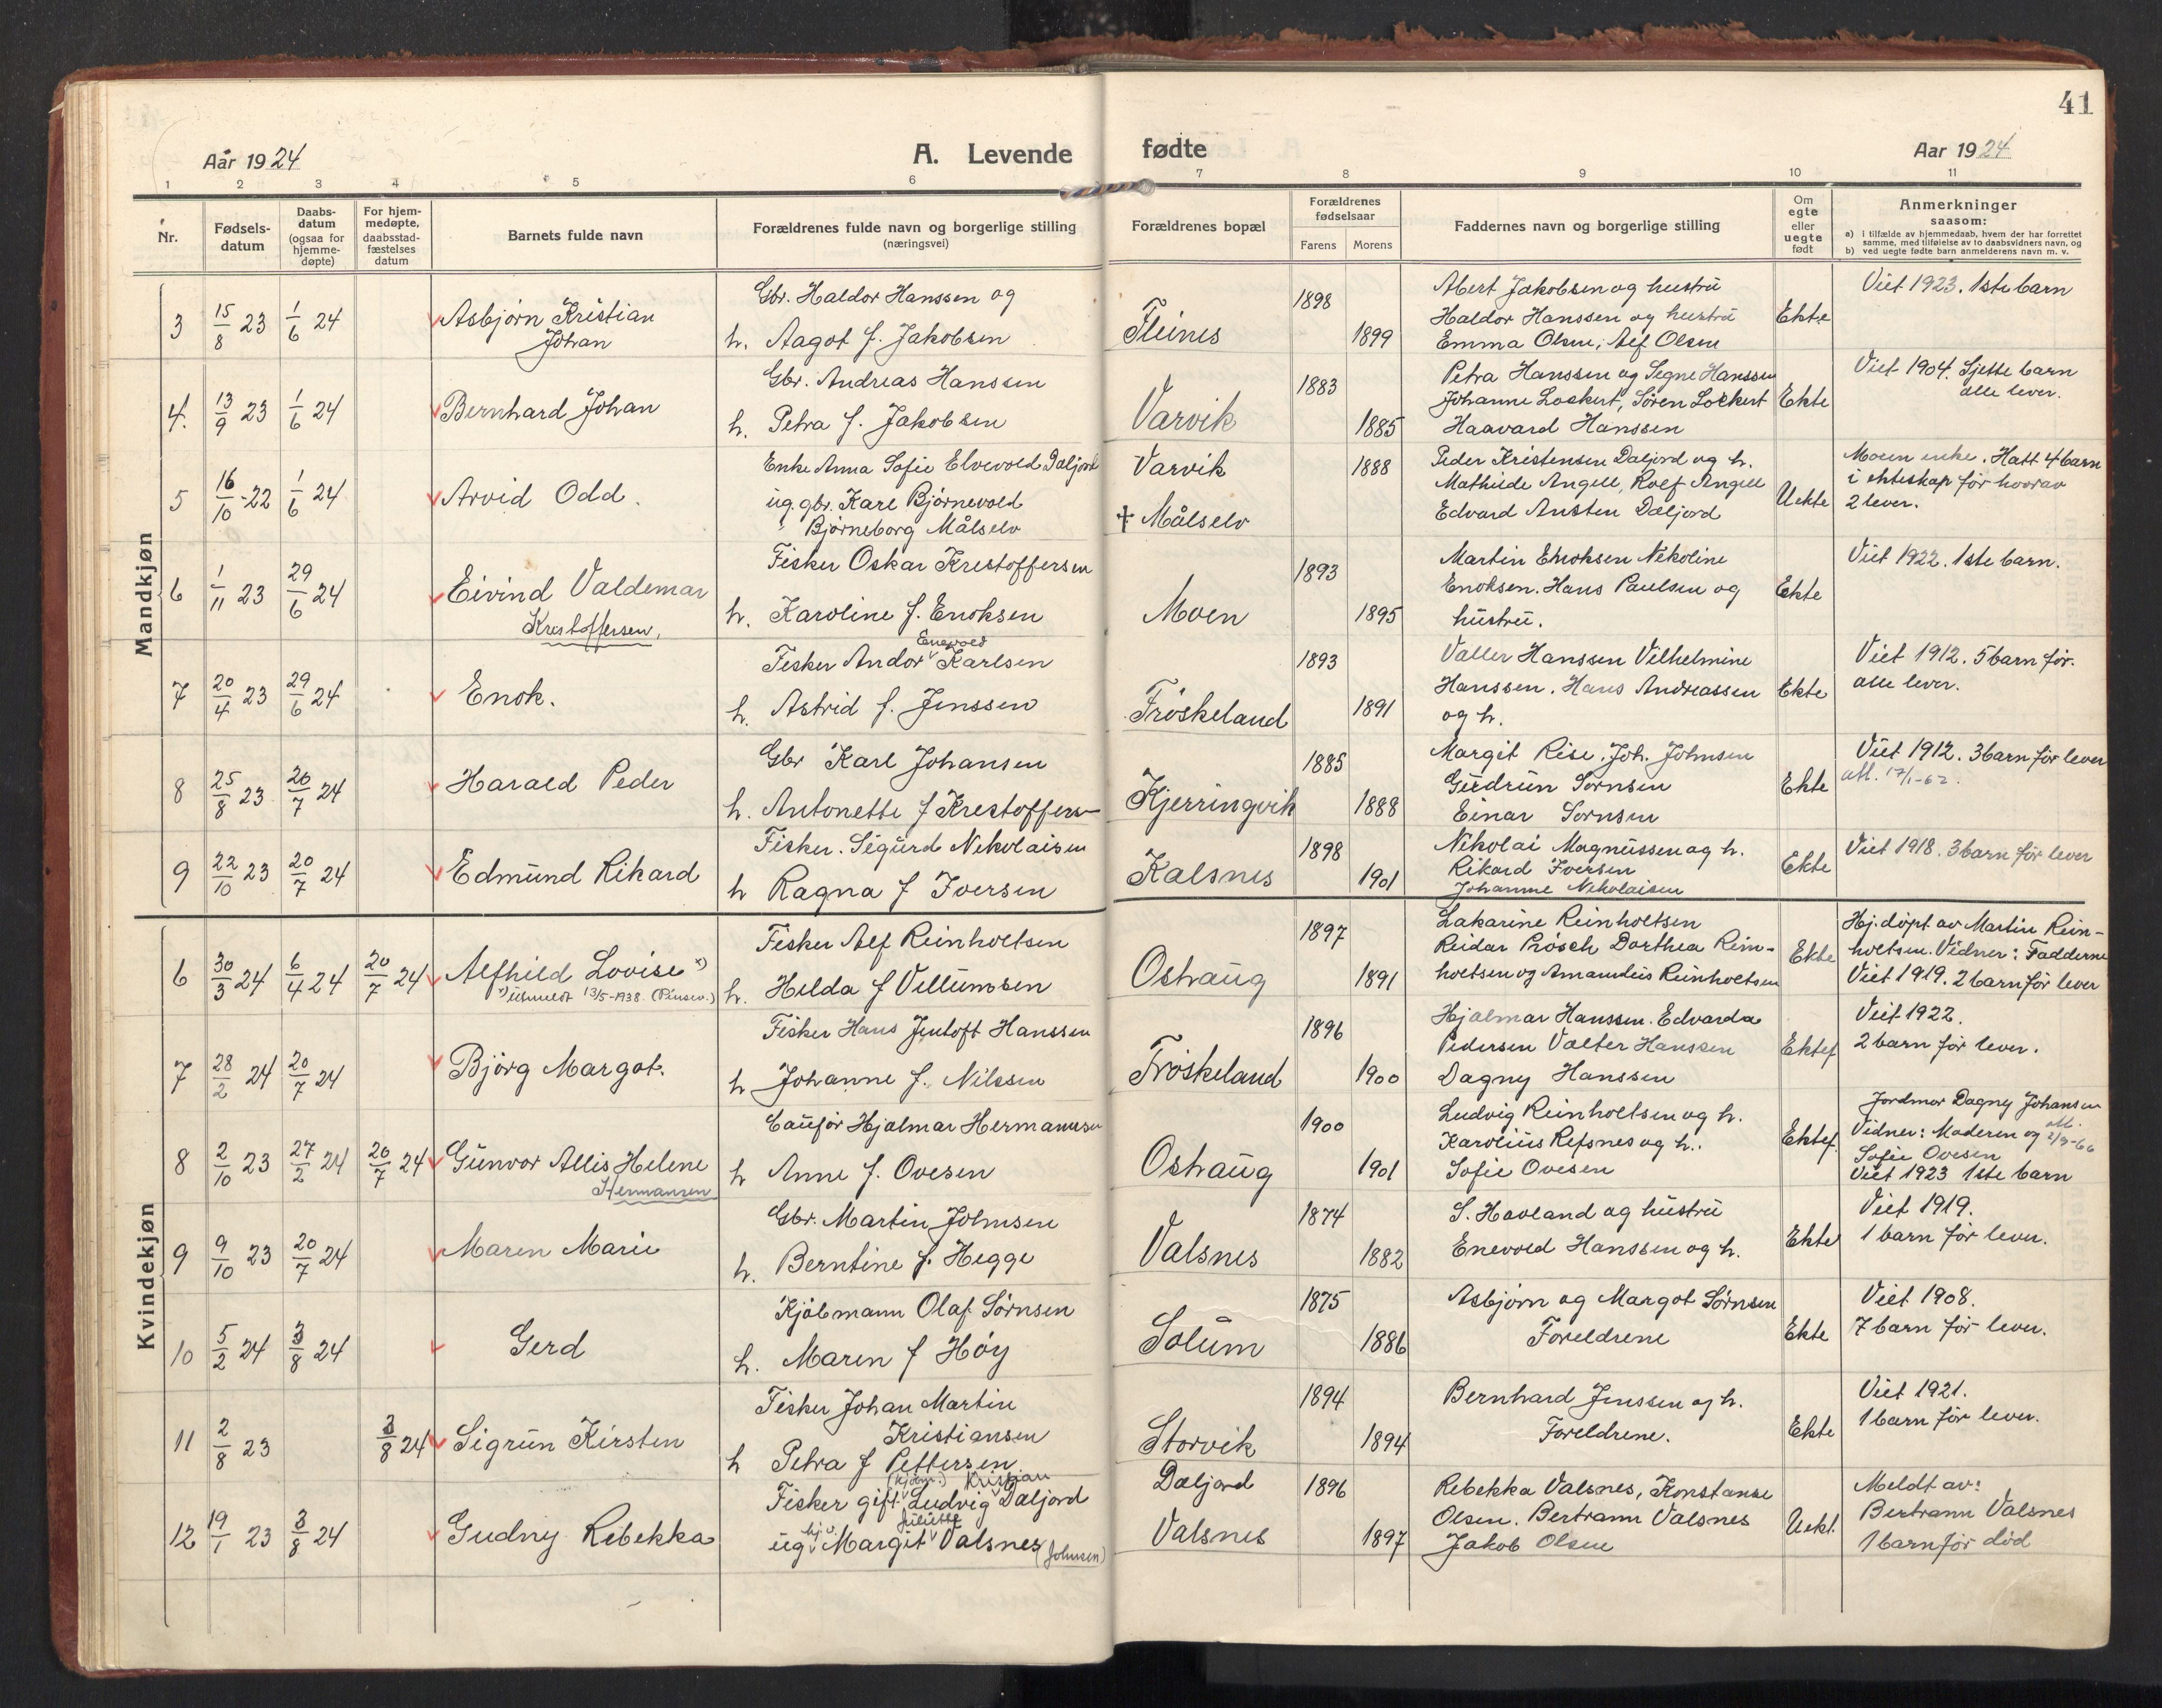 41
Aar 1924
A. Levende fødte
Aar 1924
1 2 3 4 5 6 7 8 9 10 11
Nr.
Fødsels-
datum
Daabs-
datum
(ogsaa for
hjemme-
døpte)
For hjem-
medøpte,
daabsstad-
fæstelses
datum
Barnets fulde navn
Forældrenes fulde navn og borgerlige stilling
(næringsvei)
Forældrenes bopæl
Forældrenes
fødselsaar
Farens Morens
Faddernes navn og borgerlige stilling
Om
egte
eller
uegte
født
Anmerkninger
saasom:
a) i tilfælde av hjemmedaab, hvem der har forrettet
samme, med tilføielse av to daabsvidners navn, og
b) ved uegte fødte barn anmelderens navn m. v.
Mandkjøn
3 15/8 23 1/6 24 Asbjørn Kristian
Johan
Gbr. Haldor Hanssen og
h. Aagot f. Jakobsen
Fleines 1898 1899
Abert Jakobsen og hustru
Haldor Hanssen og hustru
Emma Olsen, Alf Olsen
Ekte
Viet 1923. 1ste barn
4. 13/9 23 1/6 24 Bernhard Johan
Gbr. Andreas Hanssen
h. Petra f. Jakobsen
Varvik 1883 1885
Petra Hanssen og Segne Hanssen
Johanne Lockert, Søren Lockert
Haavard Hanssen
Ekte
Viet 1904. Sjette barn
alle lever.
5 16/10-22 1/6 24 Arvid Odd.
Enke Anna Sofie Elvevold Daljord
ug. gbr. Karl Bjørnevold
Bjørneborg Målselv
Varvik 1888
+ Målselv
Peder Kristensen Daljord og h.
Mathilde Angell, Rolf Angell
Edvard Austen Daljord
Uekte
Moren enke. Hatt 4 barn
i ekteskap før hvorav
2 lever.
6 1/11 23 29/6 24 Eivind Valdemar
Krestoffersen,
Fisker Oskar Krestoffersen
h. Karoline f. Enoksen
Moen 1893 1895
Martin Enoksen Nikoline
Enoksen. Hans Paulsen og
hustru.
Ekte
Viet 1922. 1ste barn.
7 20/4 23 29/6 24 Enok.
Enevold
Fisker Andor Karlsen
h. Astrid f. Jenssen
Frøskeland 1893 1891
Valler Hanssen Vilhelmine
Hanssen. Hans Andreassen
og h.
Ekte
Viet 1912. 5 barn før.
alle lever.
8 25/8 23 20/7 24 Harald Peder
Gbr Karl Johansen
h. Antonette f Krestoffersen
Kjerringvik 1885 1888
Margit Rise. Joh. Johnsen
Gudrun Sørnsen
Einar Sørnsen
Ekte
Viet 1912. 3 barn før lever
att. 17/1-62.
9 22/10 23 20/7 24 Edmund Rikard
Fisker. Sigurd Nikolaisen
h Ragna f Iversen
Kalsnes 1898 1901
Nikolai Magnussen og h.
Rikard Iversen
Johanne Nikolaisen
Ekte
Viet 1918. 3 barn før lever
Kvindekjøn
6 30/3 24 6/4 24 20/7 24 Alfhild Lovise x)
x) utmeldt 13/5-1938. (Pinsev.)
Fisker Alf Reinholtsen
h. Hilda f Villumsen
Osthaug 1897 1891
Lakarine Reinholtsen
Reidar Prösch Dorthea Rein-
holtsen og Amandus Reinholtsen
Ekte
Hj. døpt av Martin Rein-
holtsen. Vidner: Fadderne
Viet 1919. 2 barn før lever
7 28/2 24 20/7 24 Bjørg Margot.
Fisker Hans Jentoft Hanssen
h Johanne f. Nilssen
Frøskeland 1896 1900
Hjalmar Hanssen. Edvarda
Pedersen Valter Hanssen
Dagny Hanssen
Ektef
Viet 1922.
2 barn før lever.
8 2/10 23 27/2 24 20/7 24 Gunvor Allis Helene
Hermansen
Caufør Hjalmar Hermansen
h Anne f. Ovesen
Osthaug 1900 1901
Ludvig Reinholtsen og h.
Karolius Refsnes og h.
Sofie Ovesen
Ektef.
Jordmor Dagny Johansen
Vidner: Moderen og att. 2/9-66
Sofie Ovesen
Viet 1923 1ste barn
9 9/10 23 20/7 24 Maren Marie
Gbr. Martin Johnsen
h. Berntine f. Hegge
Valsnes 1874 1882
S. Havland og hustru
Enevold Hanssen og h.
Ekte
Viet 1919.
1 barn før lever.
10 5/2 24 3/8 24 Gerd
Kjøbmann Olaf Sørnsen
h. Maren f Høy
Solum 1875 1886
Asbjørn og Margot Sørnsen
Foreldrene
Ekte
Viet 1908.
7 barn før lever.
11 2/8 23 3/8 24 Sigrun Kirsten
Fisker Johan Martin
Kristiansen
h Petra f Pettersen
Storvik 1894 1894
Bernhard Jenssen og h.
Foreldrene.
Ekte
Viet 1921.
1 barn før lever.
12 19/1 23 3/8 24 Gudny Rebekka
(kjøbm.) Kristian
Fisker gift. Ludvig Daljord
Juliussd
ug. Margit Valsnes (Johnsen)
Daljord 1896
Valsnes 1897
Rebekka Valsnes, Konstanse
Olsen. Bertram Valsnes
Jakob Olsen
Uekt.
Meldt av:
Bertram Valsnes
1 barn før død